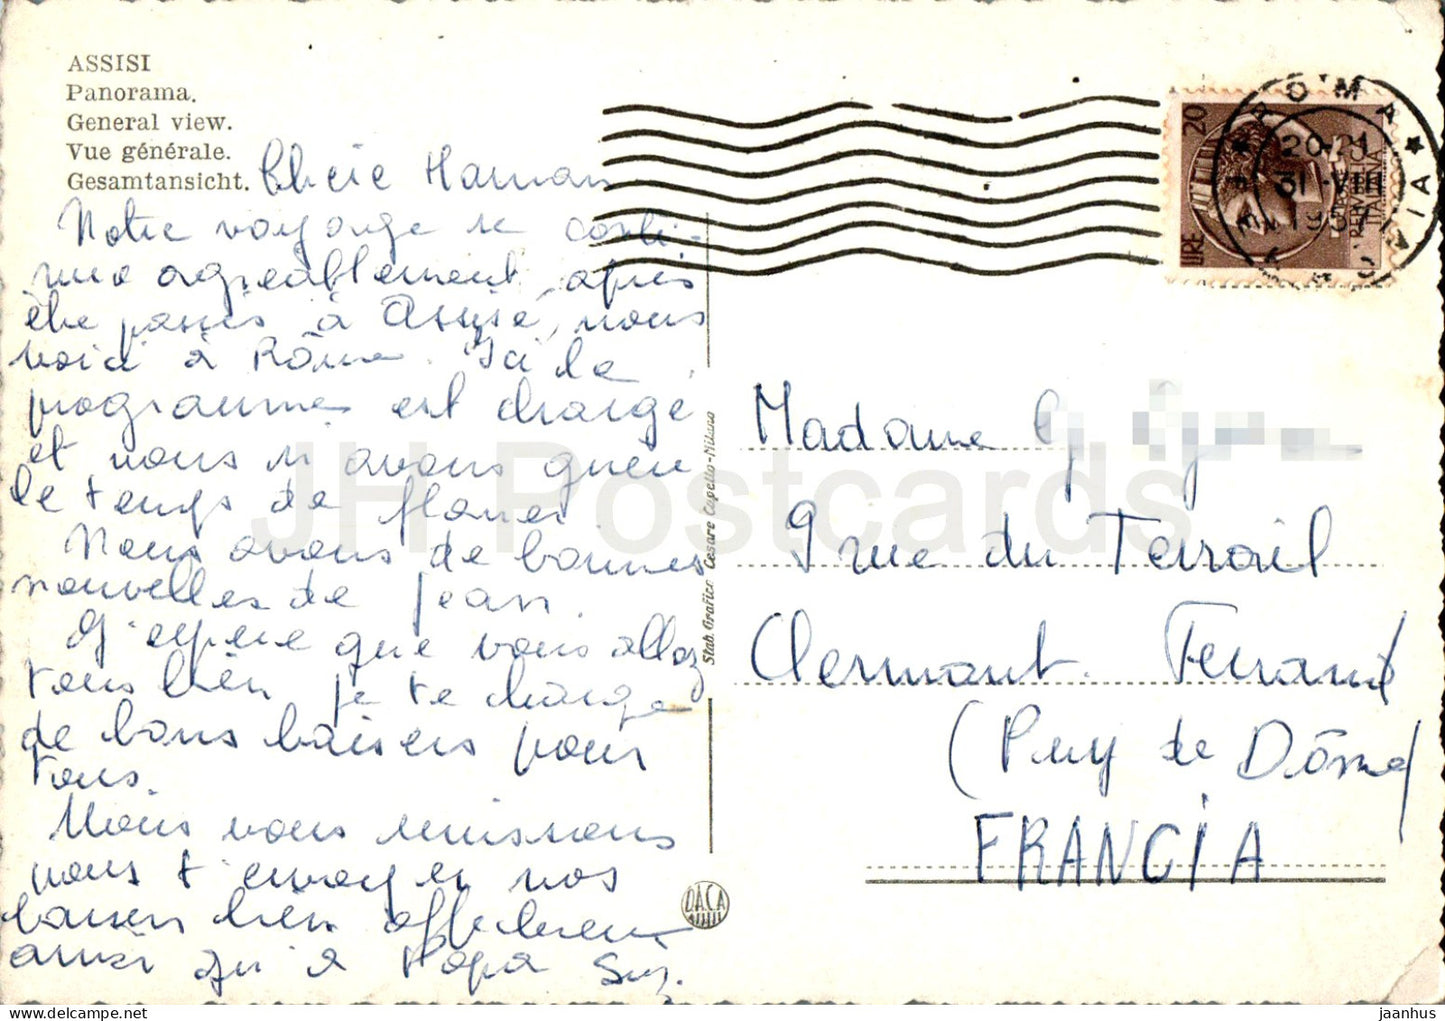 ASSISI
Panorama.
General view.
Vue générale.
Gesamtansicht.
Chérie Maman
Notre voyage se conti-
nue agréablement, après
être passés à Assise, nous
voici à Rôme. Ici le
programme est chargé
et nous n'avons guère
le temps de flaner.
Nous avons de bonnes
nouvelles de Jean.
J'espère que vous allez
tous bien je te charge
de bons baisers pour
tous.
Nous nous unissons
pour t'envoyer nos
baisers bien affectueux
ainsi qu'à Papa Suz.
Stab. Grafico Cesare Capello-Milano
D.A.C.A
ROMA
20-21
31 VIII
1957
FERROVIA
LIRE 20
ITALIANA
Madame G
9 rue du Terrail
Clermont. Ferrand
(Puy de Dôme)
FRANCIA
JH Postcards
jaanhus